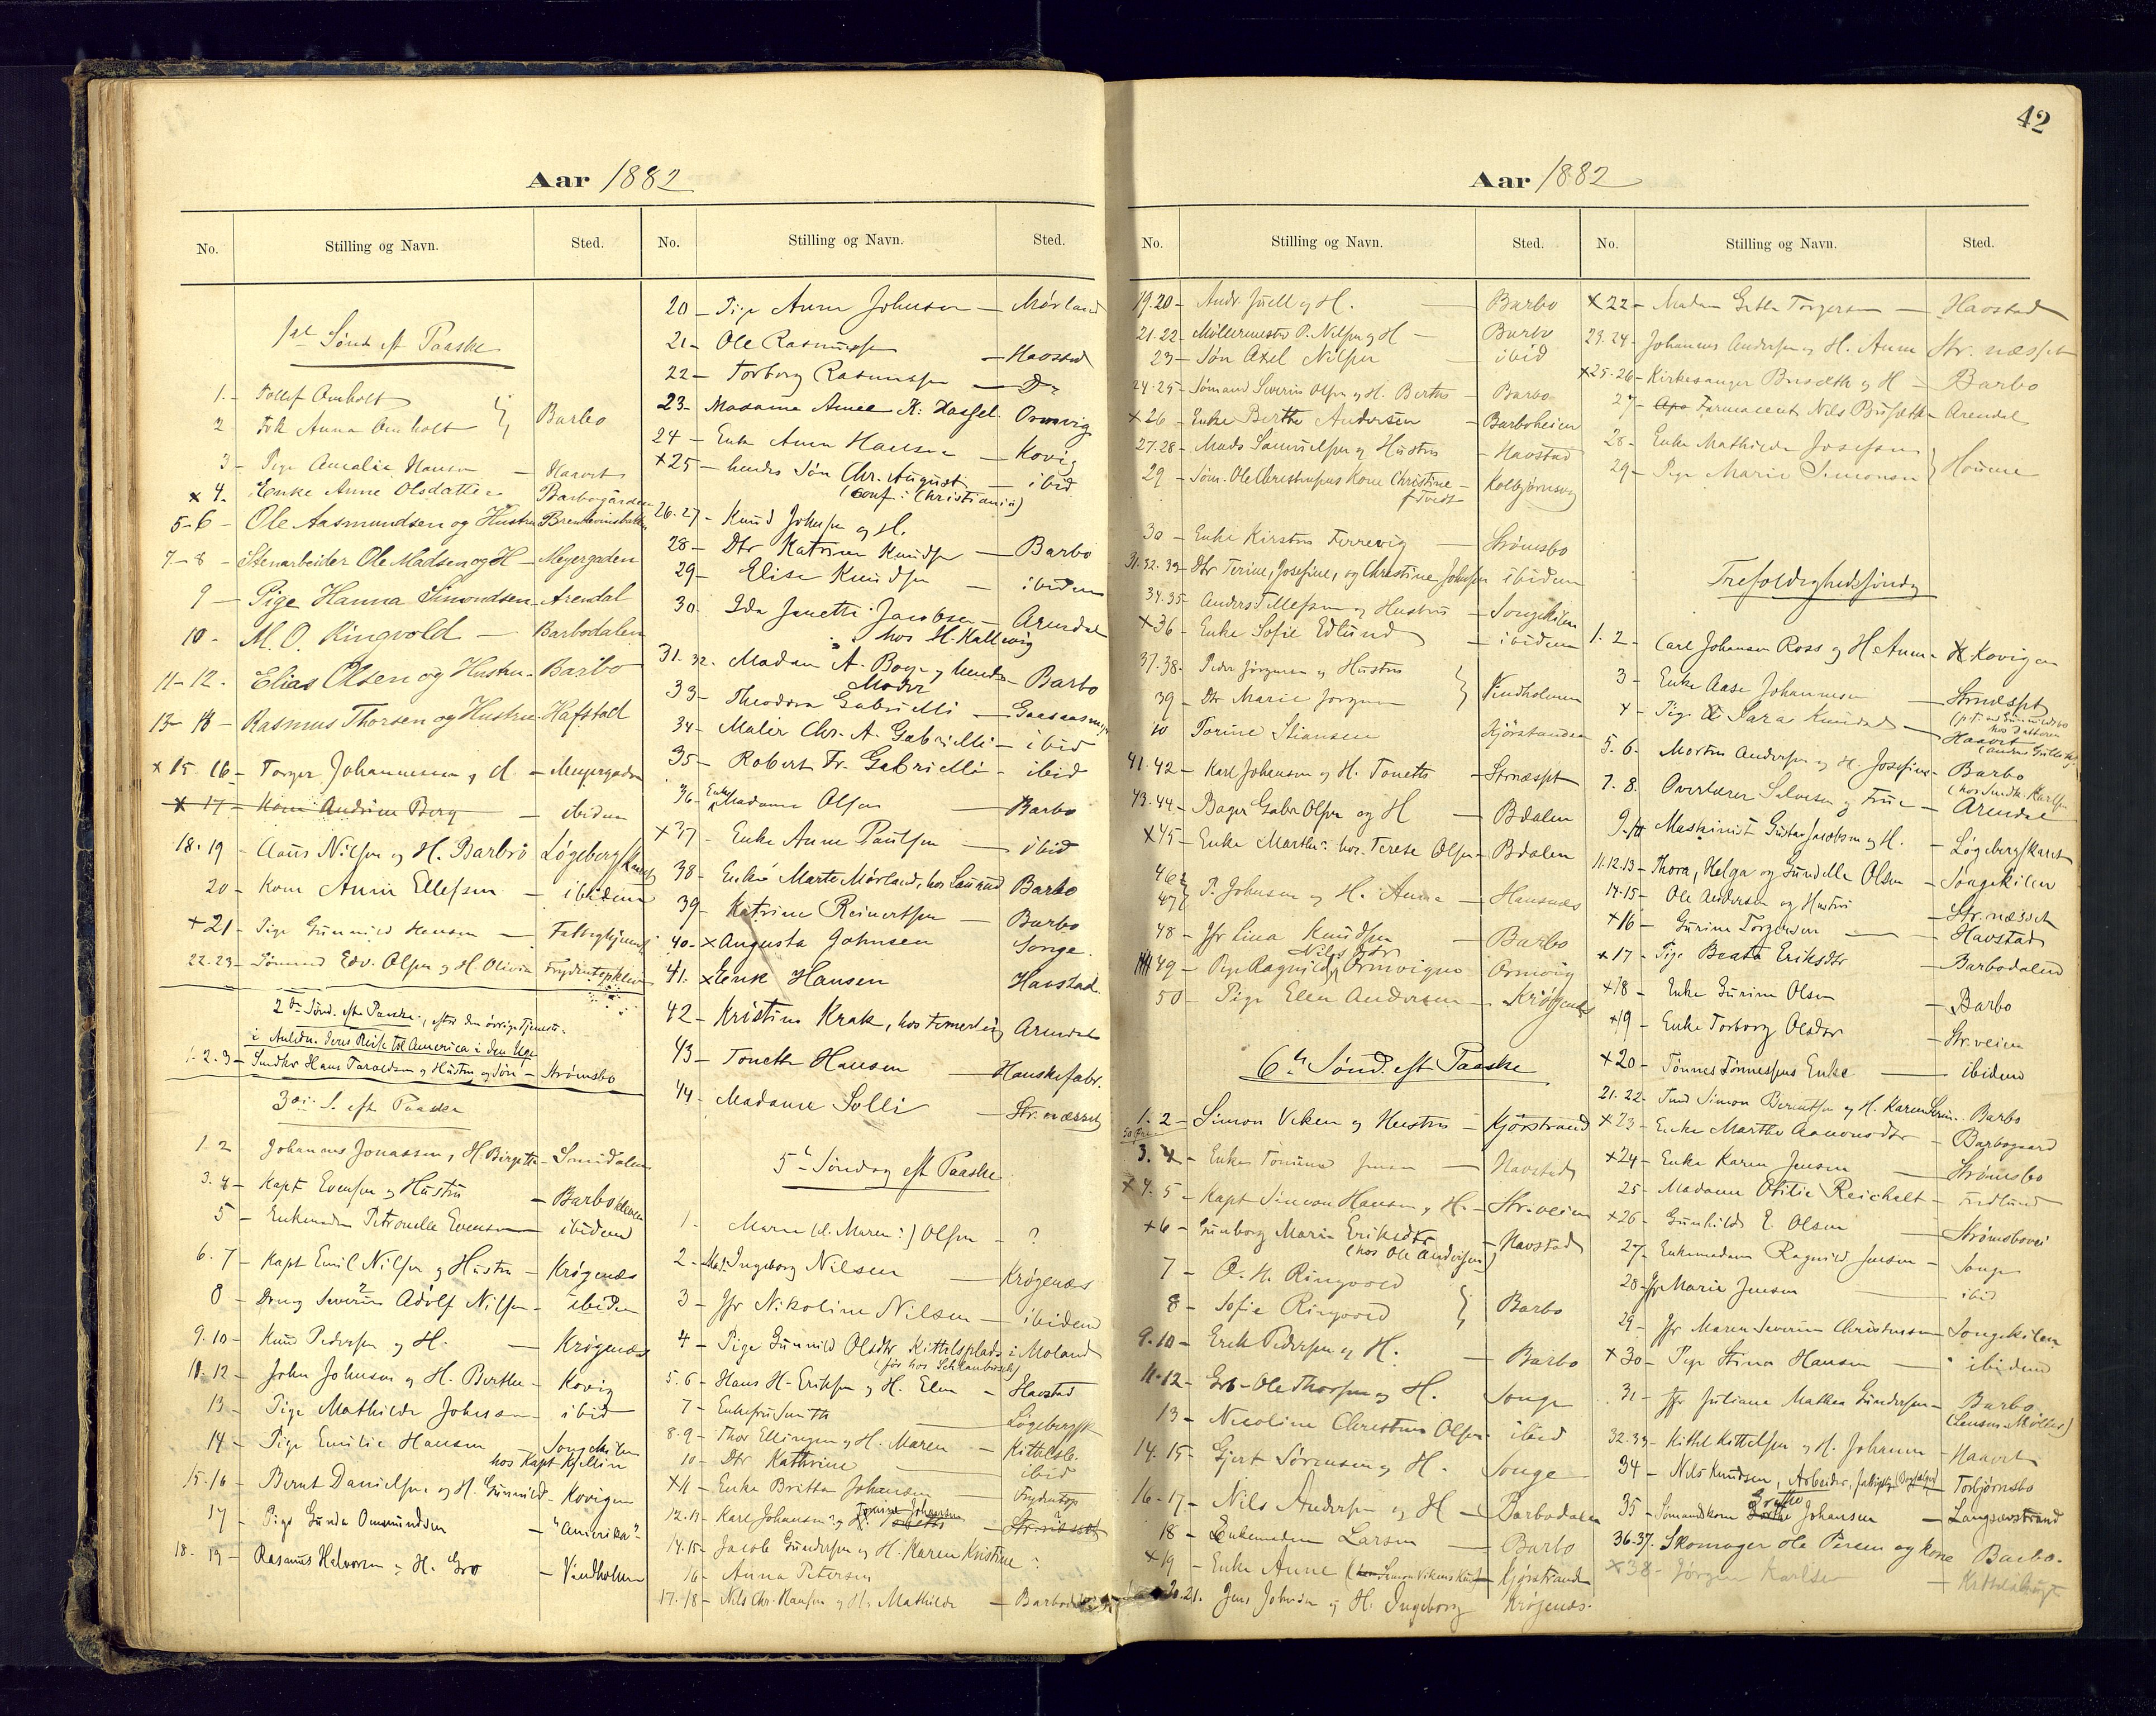 42
Aar 1882
No. Stilling og Navn. Sted. No. Stilling og Navn. Sted.
1ste Sønd. eft Paaske
1. - Tellef Omholt
2 Frk Anna Omholt } Barbo
3 - Pige Amalie Hansen - Haavet
x 4. - Enke Anne Olsdatter Barbogården
5-6 - Ole Aasmundsen og Hustru
7-8 - Stenarbeider Ole Madsen og H - Meyergaden
9 - Pige Hanna Simondsen - Arendal
10. - M. O. Ringvold - Barbodalen
11-12. Elias Olsen og Hustru - Barbo
13-14 - Rasmus Thorsen og Hustru - Hafstad
x 15. 16 - Torger Johannesen og H - Meyergaden
x 17 - Kone Andrine Berg - ibidem
18. 19 - Aanus Nilsen og H. Barbro
20 - Kone Anne Ellefsen - ibidem
x 21 - Pige Gunnild Hansen -
22. 23 - Sømand Edv. Olsen og H. Olivia
2den Sønd. efter Paaske, efter den øvrige Tjeneste
i Anledn. deres Reise til America i den Uge
1. 2. 3 - Hans Taraldsen og Hustru og Søn - Strømsbo
3die S. eft Paaske
1. 2 Johannes Jonassen og H. Birgitte - Smidalen
3. 4 - Kapt Evensen og Hustru - Barbo
5 - Enkemadam Petronelle Evensen - ibidem
6. 7 - Kapt Emil Nilsen og Hustru - Krøgenæs
8 - Dreng Severin Adolf Nilsen - ibidem
9. 10 - Knud Pedersen og H. - Krøgenæs
11. 12 - John Johnsen og H. Berthe - Kovig
13 - Pige Mathilde Johnsen - ibid
14 - Pige Emilie Hansen Songekilen
hos Kapt Kjellin
15. 16 - Bernt Danielsen og H. Gunnild - Kovigen
17 - Pige Gunda Omundsen - "Amerika"
18. 19 - Rasmus Halvorsen og H. Gro - Vindholmen
20 - Pige Anna Johnsen - Mørland
21 - Ole Rasmussen - Havstad
22 - Torborg Rasmussen - Do
23 - Madame Anne K. Hassel Ormvig
24 - Enke Anna Hansen - Kovig
x 25 - hendes Søn Chr. August - ibid
(conf. i Christiania)
26. 27 - Knud Johnsen og H.
28 - Dtr Katrine Knudsen - Barbo
29 - Elise Knudsen - ibidem
30 Ida Janette Jacobsen - Arendal
hos H. Kallevig
31. 32. Madam A. Boye og hendes - Barbo
Moder
33 - Theodora Gabrielli -
34 - Maler Chr. A. Gabrielli - ibid
35 - Robert Fr. Gabrielli - ibid
36 - Enke Madame Olsen - Barbo
x 37 - Enke Anne Paulsen - ibid
38 - Enke Marte Mørland, hos Barbo
39 - Katrine Reinertsen - Barbo
40 - x Augusta Johnsen Songe.
41. x Enk Hansen Havstad.
42 - Kristine Krak, hos Arendal
43 - Tonette Hansen - Hanskefabr.
44 - Madame Solli - Str. næsset
5te Søndag eft Paaske
1. Marn (d. Maren:) Olsen - ?
2 - Mad. Ingeborg Nilsen - Krøgenæs
3 - Jfr Nikoline Nilsen - ibidem
4 - Pige Gunnild Olsdtr Kittilsplads i Moland
5. 6 - Hans H. Eriksen og H. Elen - Havstad
7 - Enkefru Smith - Løgebergsk.
8. 9 - Thor Ellingsen og H. Maren - Kittelsb.
10 - Dtr Kathrine - ibid
x 11 - Enke Britta Johansen - Frydentop
12. 13 - Karl Johansen og H. Tonette - Str. næsset
14. 15 - Jacob Gundersen og H. Karen Kristine
16 - Anna Petersen
17. 18 - Nils Chr. Hansen og H. Mathilde - Barbodalen
Aar 1882
No. Stilling og Navn. Sted. No. Stilling og Navn. Sted.
19. 20 - Andr. Juell og H. - Barbo
21. 22 - Møllermester P. Nilsen og H - Barbo
23 - Søn Axel Nilsen - ibid
24. 25 - Sømand Severin Olsen og H. Berthe - Barbo
x 26 - Enke Berthe Andersen - Barboheien
27. 28 - Mads Samuelsen og Hustru - Havstad
29 - Søm. Ole Christensens Kone Christine - Kolbjørnsvig
f. Tvedt
30 - Enke Kirsten Ferrevig - Strømsbo
31. 32. 33 - Dtr Terine, Josefine, og Christine Johnsen ibidem
34. 35 - Anders Tellefsen og Hustru - Songekilen
x 36 - Enke Sofie Edlund - ibidem
37. 38 - Peder Jørgensen og Hustru
39 - Dtr Marie Jørgensen } Vindholmen
40 Torine Stiansen Kjørstranden
41. 42 - Karl Johansen og H. Tonette - Strnæsset
43. 44 - Bager Gabr Olsen og H - Bdalen
x 45 - Enke Marthe: hos Terese Olsen - Bdalen
46
47 } P. Johnsen og H. Anna - Hansnæs
48 - Jfr Lina Knudsen - Barbo
Nils Dtr
49 - Pige Ragnild Ormvigne Ormvig
50 - Pige Elen Andersen - Krøgenæs
6te Sønd. eft Paaske
1. 2 - Simon Viken og Hustru - Kjørstrand
3. - Enke Tomine Jensen - Havstad
x 4. 5 - Kapt Simon Hansen og H. - Str. veien
x 6 - Gunborg Marie Eriksdtr - Havstad
(hos Ole Andersen)
7 - O. H. Ringvold
8 - Sofie Ringvold } Barbo
9. 10 - Erik Pedersen og H. - Barbo
11-12 - Grb - Ole Thorsen og H. Songe
13 - Nicoline Christine Olsen - ibid
14. 15 - Gjert Sørensen og H. Songe
16-17 - Nils Andersen og H - Barbodalen
18 - Enkemadam Larsen - Barbo
x 19 - Enke Anne - Kjørstranden
20. 21. Jens Johnsen og H. Ingeborg Krøgenæs.
x 22 - Madam Gitte Torgersen - Havstad
23. 24 - Johannes Andersen og H. Anne Str. næsset
x 25. 26 - Kirkesanger Busæth og H - Barbo
27 - Apo Farmaceut Nils Busæth - Arendal
28 - Enke Mathilde Josefsen
29 - Pige Marie Simonsen
Trefoldighedssøndag
1. 2 - Carl Johansen Ross og H. Anne - Kovigen
3 - Enke Aase Johannesen - Strnæsset
4 - Pige Sara Knudsd.
5. 6 - Morten Andersen og H. Josefine - Barbo
7. 8. Overlærer Salvesen og Frue - Arendal
9. 10 Maskinist Gustav Jacobsen og H. - Løgebergskaret
11. 12. 13 - Thora, Helga og Gundelle Olsen - Songekilen
14-15 - Ole Andersen og Hustru - Str. næsset
x 16 - Gurine Torgersen - Havstad
x 17 - Pige Beata Eriksdtr - Barbodalen
x 18 - Enke Gurine Olsen - Barbo
x 19 - Enke Torborg Olsdtr - Str. veien
x 20 - Tønnes Tønnessens Enke - ibidem
21. 22 - Simon Berentsen og H. Karen Serin. Barbo
x 23 - Enke Marthe Aanonsdtr - Barbogaard
x 24 - Enke Karen Jensen - Strømsbo
25 - Madame Otilie Reichelt - Fredlund
x 26 - Gunhilde E. Olsen - Strømsbovei
27 - Enkemadam Ragnild Jensen - Songe
28 - Jfr Marie Jensen - ibid
29 - Jfr Maren Severine Christensen - Songekilen
x 30 - Pige Stina Hansen - ibidem
31 - Jfr Juliane Mathea Gundersen - Barbo
32. 33 - Kittel Kittelsen og H. Johanne - Haavet
34 - Nils Knudsen, Arbeider, - Torbjørnsbo
Grethe
35 - Sømandskone Dorthe Johansen - Langsævstrand
36. 37. Skomager Ole Persen og kone Barbo.
x 38 - Jørgen Karlsen - Kittelsbugt